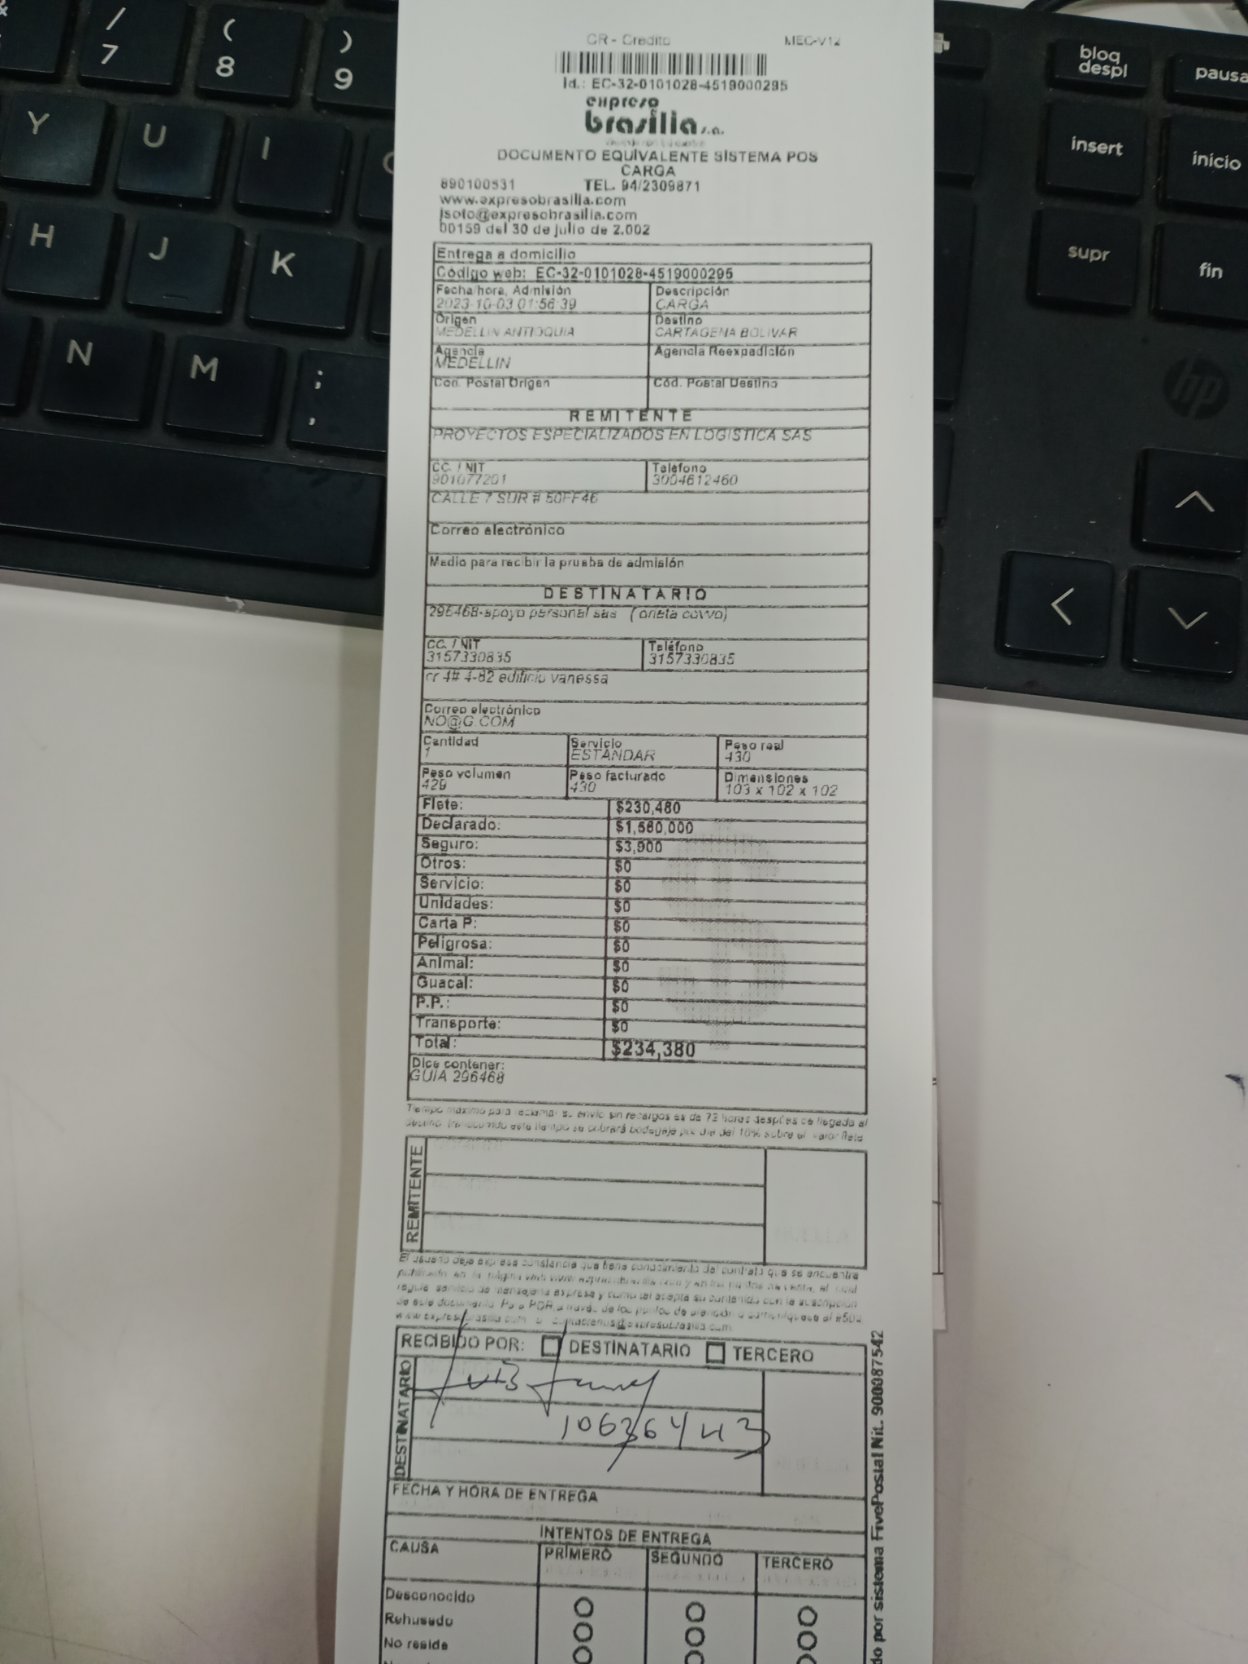 CR - Credito MEC-V12
Id.: EC-32-0101028-4519000295
expreso
brasilia s.a.
DOCUMENTO EQUIVALENTE SISTEMA POS
CARGA
890100531 TEL. 94/2309871
www.expresobrasilia.com
jsoto@expresobrasilia.com
00159 del 30 de julio de 2.002
Entrega a domicilio
Código web: EC-32-0101028-4519000295
Fecha/hora, Admisión Descripción
2023-10-03 01:56:39 CARGA
Origen Destino
MEDELLIN ANTIOQUIA CARTAGENA BOLIVAR
Agencia Agencia Reexpedición
MEDELLIN
Cód. Postal Origen Cód. Postal Destino
REMITENTE
PROYECTOS ESPECIALIZADOS EN LOGISTICA SAS
CC. / NIT Teléfono
901077201 3004612460
CALLE 7 SUR # 50FF46
Correo electrónico
Medio para recibir la prueba de admisión
DESTINATARIO
296468-apoyo personal sas
CC. / NIT Teléfono
3157330835 3157330835
cr 4# 4-82 edificio vanessa
Correo electrónico
NO@G.COM
Cantidad Servicio Peso real
1 ESTANDAR 430
Peso volumen Peso facturado Dimensiones
429 430 103 x 102 x 102
Flete: $230,480
Declarado: $1,560,000
Seguro: $3,900
Otros: $0
Servicio: $0
Unidades: $0
Carta P: $0
Peligrosa: $0
Animal: $0
Guacal: $0
P.P.: $0
Transporte: $0
Total: $234,380
Dice contener:
GUIA 296468
Tiempo máximo para reclamar su envío sin recargos es de 72 horas después de llegada al
destino, transcurrido este tiempo se cobrará bodegaje por día del 10% sobre el valor flete
REMITENTE
El usuario deja expresa constancia que tiene conocimiento del contrato que se encuentra
RECIBIDO POR: DESTINATARIO TERCERO
DESTINATARIO
FECHA Y HORA DE ENTREGA
INTENTOS DE ENTREGA
CAUSA PRIMERO SEGUNDO TERCERO
Desconocido
Rehusado
No reside
do por sistema FivePostal Nit. 900087542
/
7
(
8
)
9
Y
U
I
H
J
K
N
M
;
,
bloq
despl
pausa
insert
inicio
supr
fin
hp